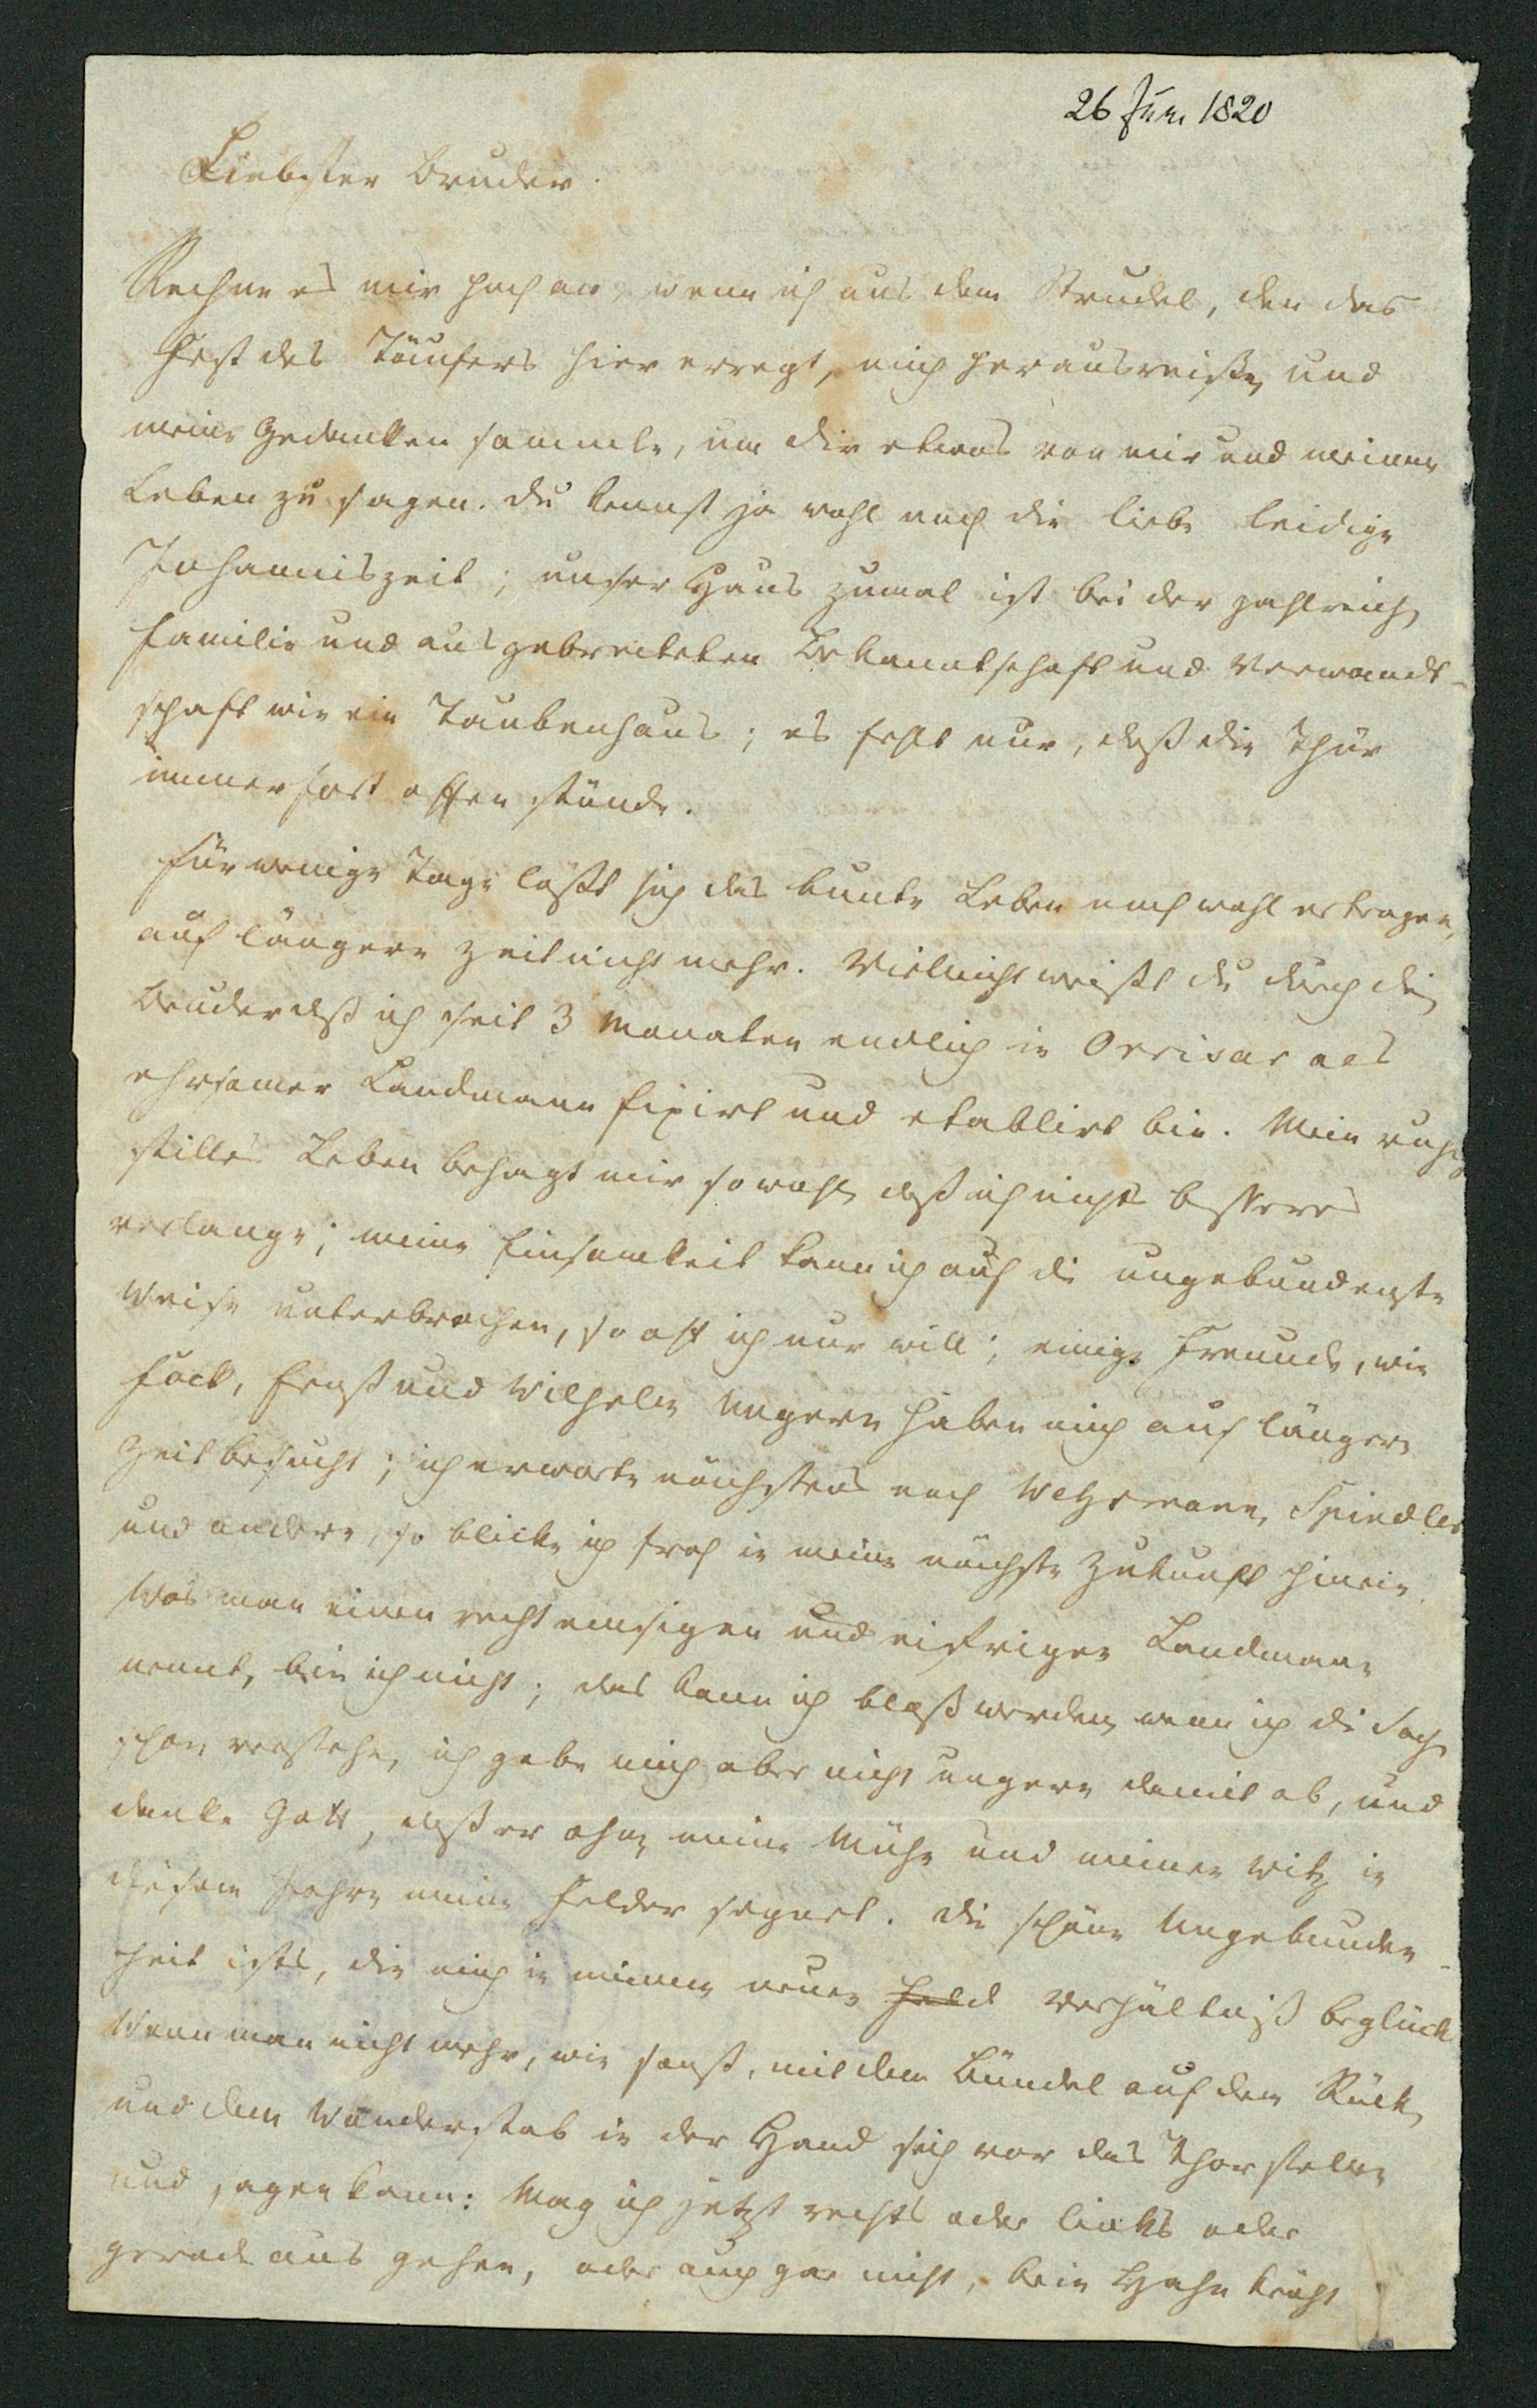 26 Jun. 1820
Liebster Bruder.
Rechne es mir hoch an, wenn ich aus dem Strudel, den das
Fest des Täufers hier erregt, mich herausreiße, und
meine Gedanken sammle, um dir etwas von mir und meinem
Leben zu sagen. Du kennst ja wohl noch die liebe leidige
Johanniszeit; unser Haus zumal ist bei der zahlreichen
Familie und ausgebreiteten Bekanntschaft und Verwandt-
schaft wie ein Taubenhaus; es fehlt nur, daß die Thür
immerfort offen stünde.
Für wenige Tage läßt sich das bunte Leben noch wohl ertragen,
auf längere Zeit nicht mehr. Vielleicht weißt du durch die
Brüder daß ich seit 3 Monaten endlich in Orrisar als
ehrsamer Landmann fixirt und etablirt bin. Mein ruhig
stilles Leben behagt mir so wohl, daß ich nichts besseres
verlange; meine Einsamkeit kann ich auf die ungebundenste
Weise unterbrechen, so oft ich nur will; einige Freunde, wie
Fock, Ernst und Wilhelm Ungern haben mich auf längere
Zeit besucht; ich erwarte nächstens noch Wehrmann, Spindler
und andere, so blicke ich froh in meine nächste Zukunft hinein.
Was man einen recht emsigen und eifrigen Landmann
nennt, bin ich nicht; das kann ich bloß werden, wenn ich die Sache
schon verstehe, ich gebe mich aber nicht ungern damit ab, und
danke Gott, daß er ohne meine Mühe und meinen Witz in
diesem Jahre meine Felder segnet. Die schöne Ungebunden-
heit ists, die mich in meinem neuen Feld Verhältniß beglückt
Wenn man nicht mehr, wie sonst, mit dem Bündel auf dem Rücken
und dem Wanderstab in der Hand sich vor das Thor stellen
und sagen kann: Mag ich jetzt rechts oder links oder
gerade aus gehen, oder auch gar nicht, kein Hahn kräht